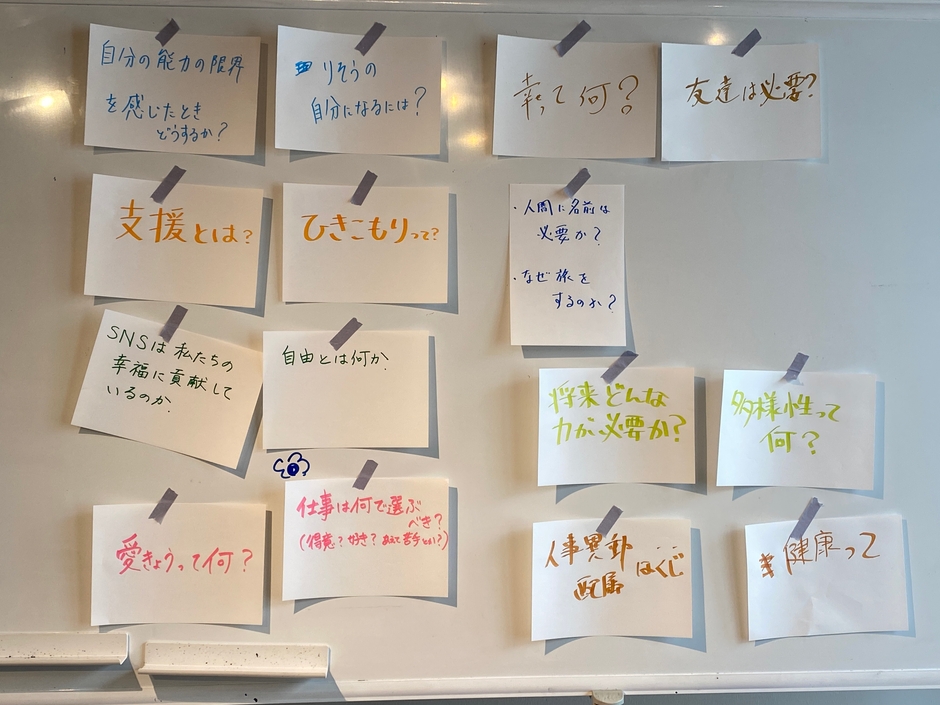 自分の能力の限界
を感じたとき
どうするか？
りそうの
自分になるには？
幸って何？
友達は必要？
支援とは？
ひきこもりって？
・人間に名前は
必要か？
・なぜ旅を
するのか？
SNSは私たちの
幸福に貢献して
いるのか.
自由とは何か.
将来どんな
力が必要か？
多様性って
何？
愛きょうって何？
仕事は何で選ぶ
べき？
(得意？好き？あえて苦手とか？)
人事異動
配属
はくじ
健康って